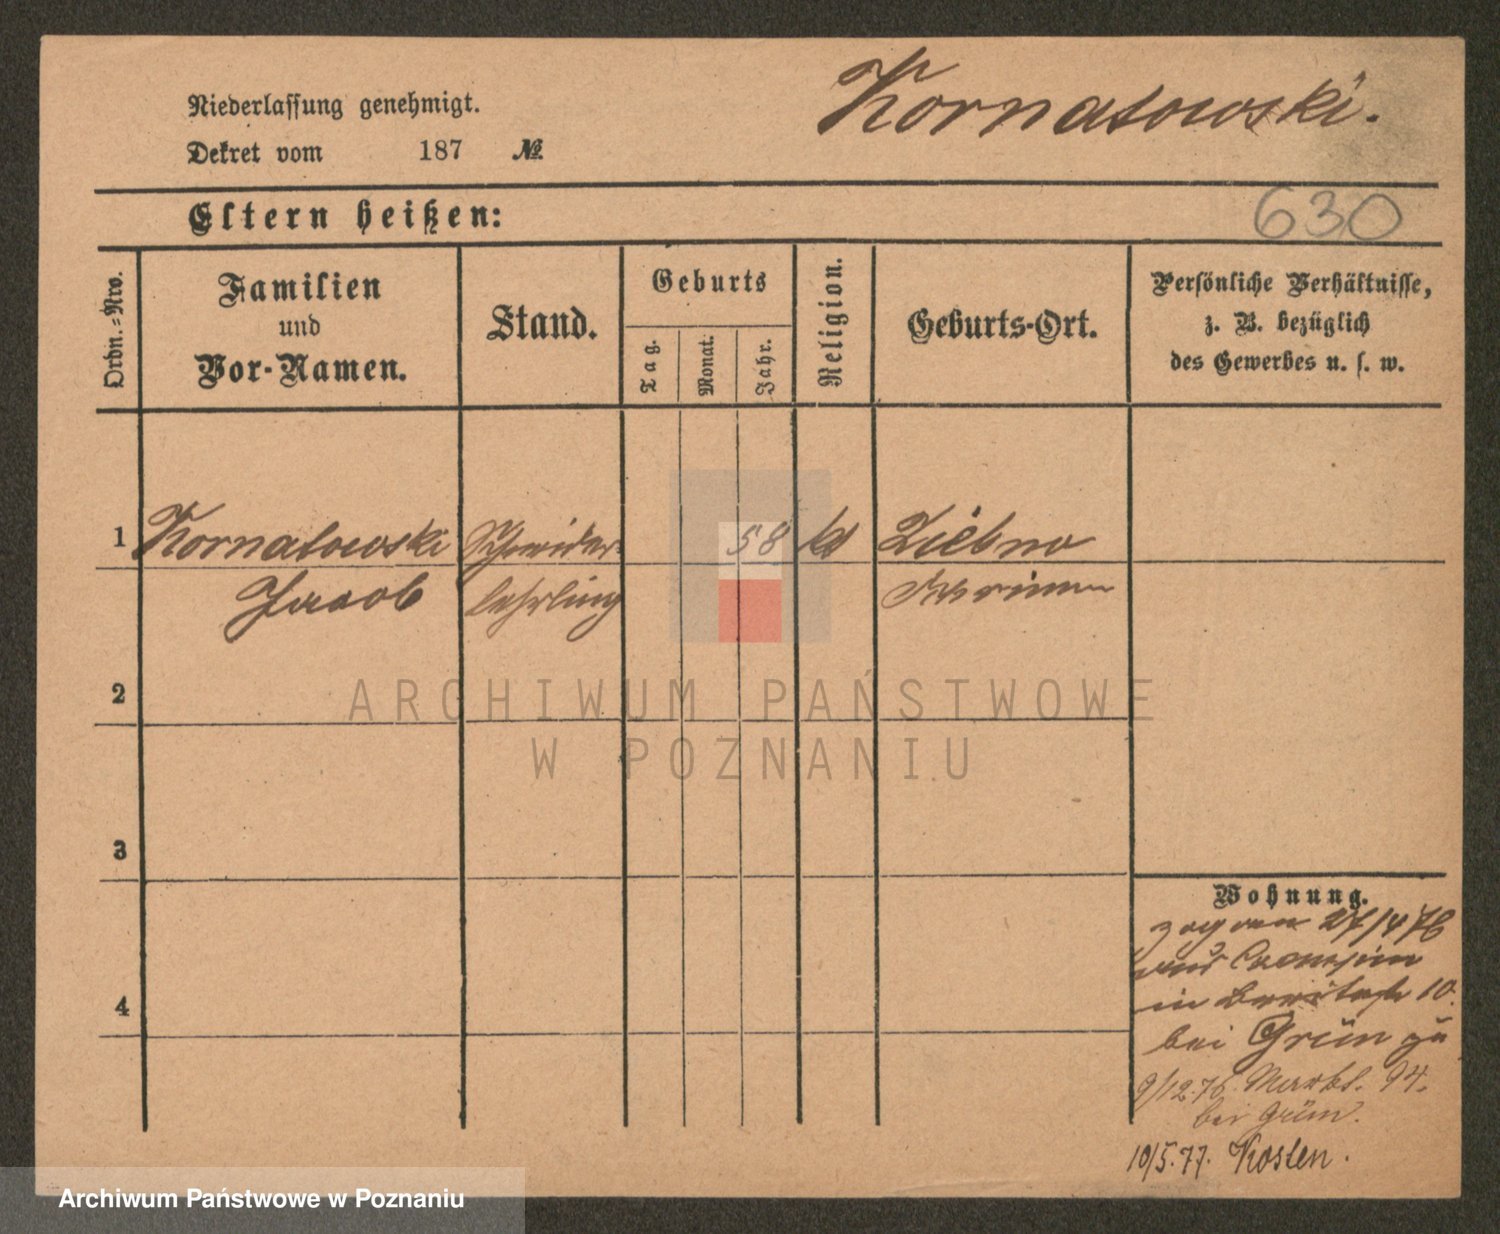 Kornatowski.
Niederlassung genehmigt.
Dekret vom 187 №
630
Eltern heißen:
Ordn.-Nro.
Familien
und
Vor-Namen.
Stand.
Geburts
Tag.
Monat.
Jahr.
Religion.
Geburts-Ort.
Persönliche Verhältnisse,
z. B. bezüglich
des Gewerbes u. s. w.
1 Kornatowski Schneider- 58 Zielno
Jacob lehrling
2
3
4
Wohnung.
zog am 27/4 76
aus
in Breitestr 10.
bei Grün zu
9/12.76. Markt. 94.
bei Grün.
10/5.77. Kosten.
ARCHIWUM PAŃSTWOWE
W POZNANIU
Archiwum Państwowe w Poznaniu